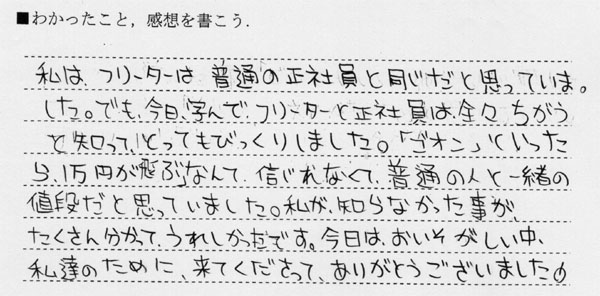 ■わかったこと，感想を書こう．
私は、フリーターは 普通の正社員と同じだと思っていま。
した。でも、今日、学んで、フリーターと正社員は、全々 ちがう
と知って、とってもびっくりしました。「ゴオン」といった
ら、1万円が飛ぶなんて、信じれなくて、普通の人と一緒の
値段だと思っていました。私が、知らなかった事が、
たくさん分かって、うれしかったです。今日は、おいそがしい中、
私達のために、来てくださって、ありがとうございました